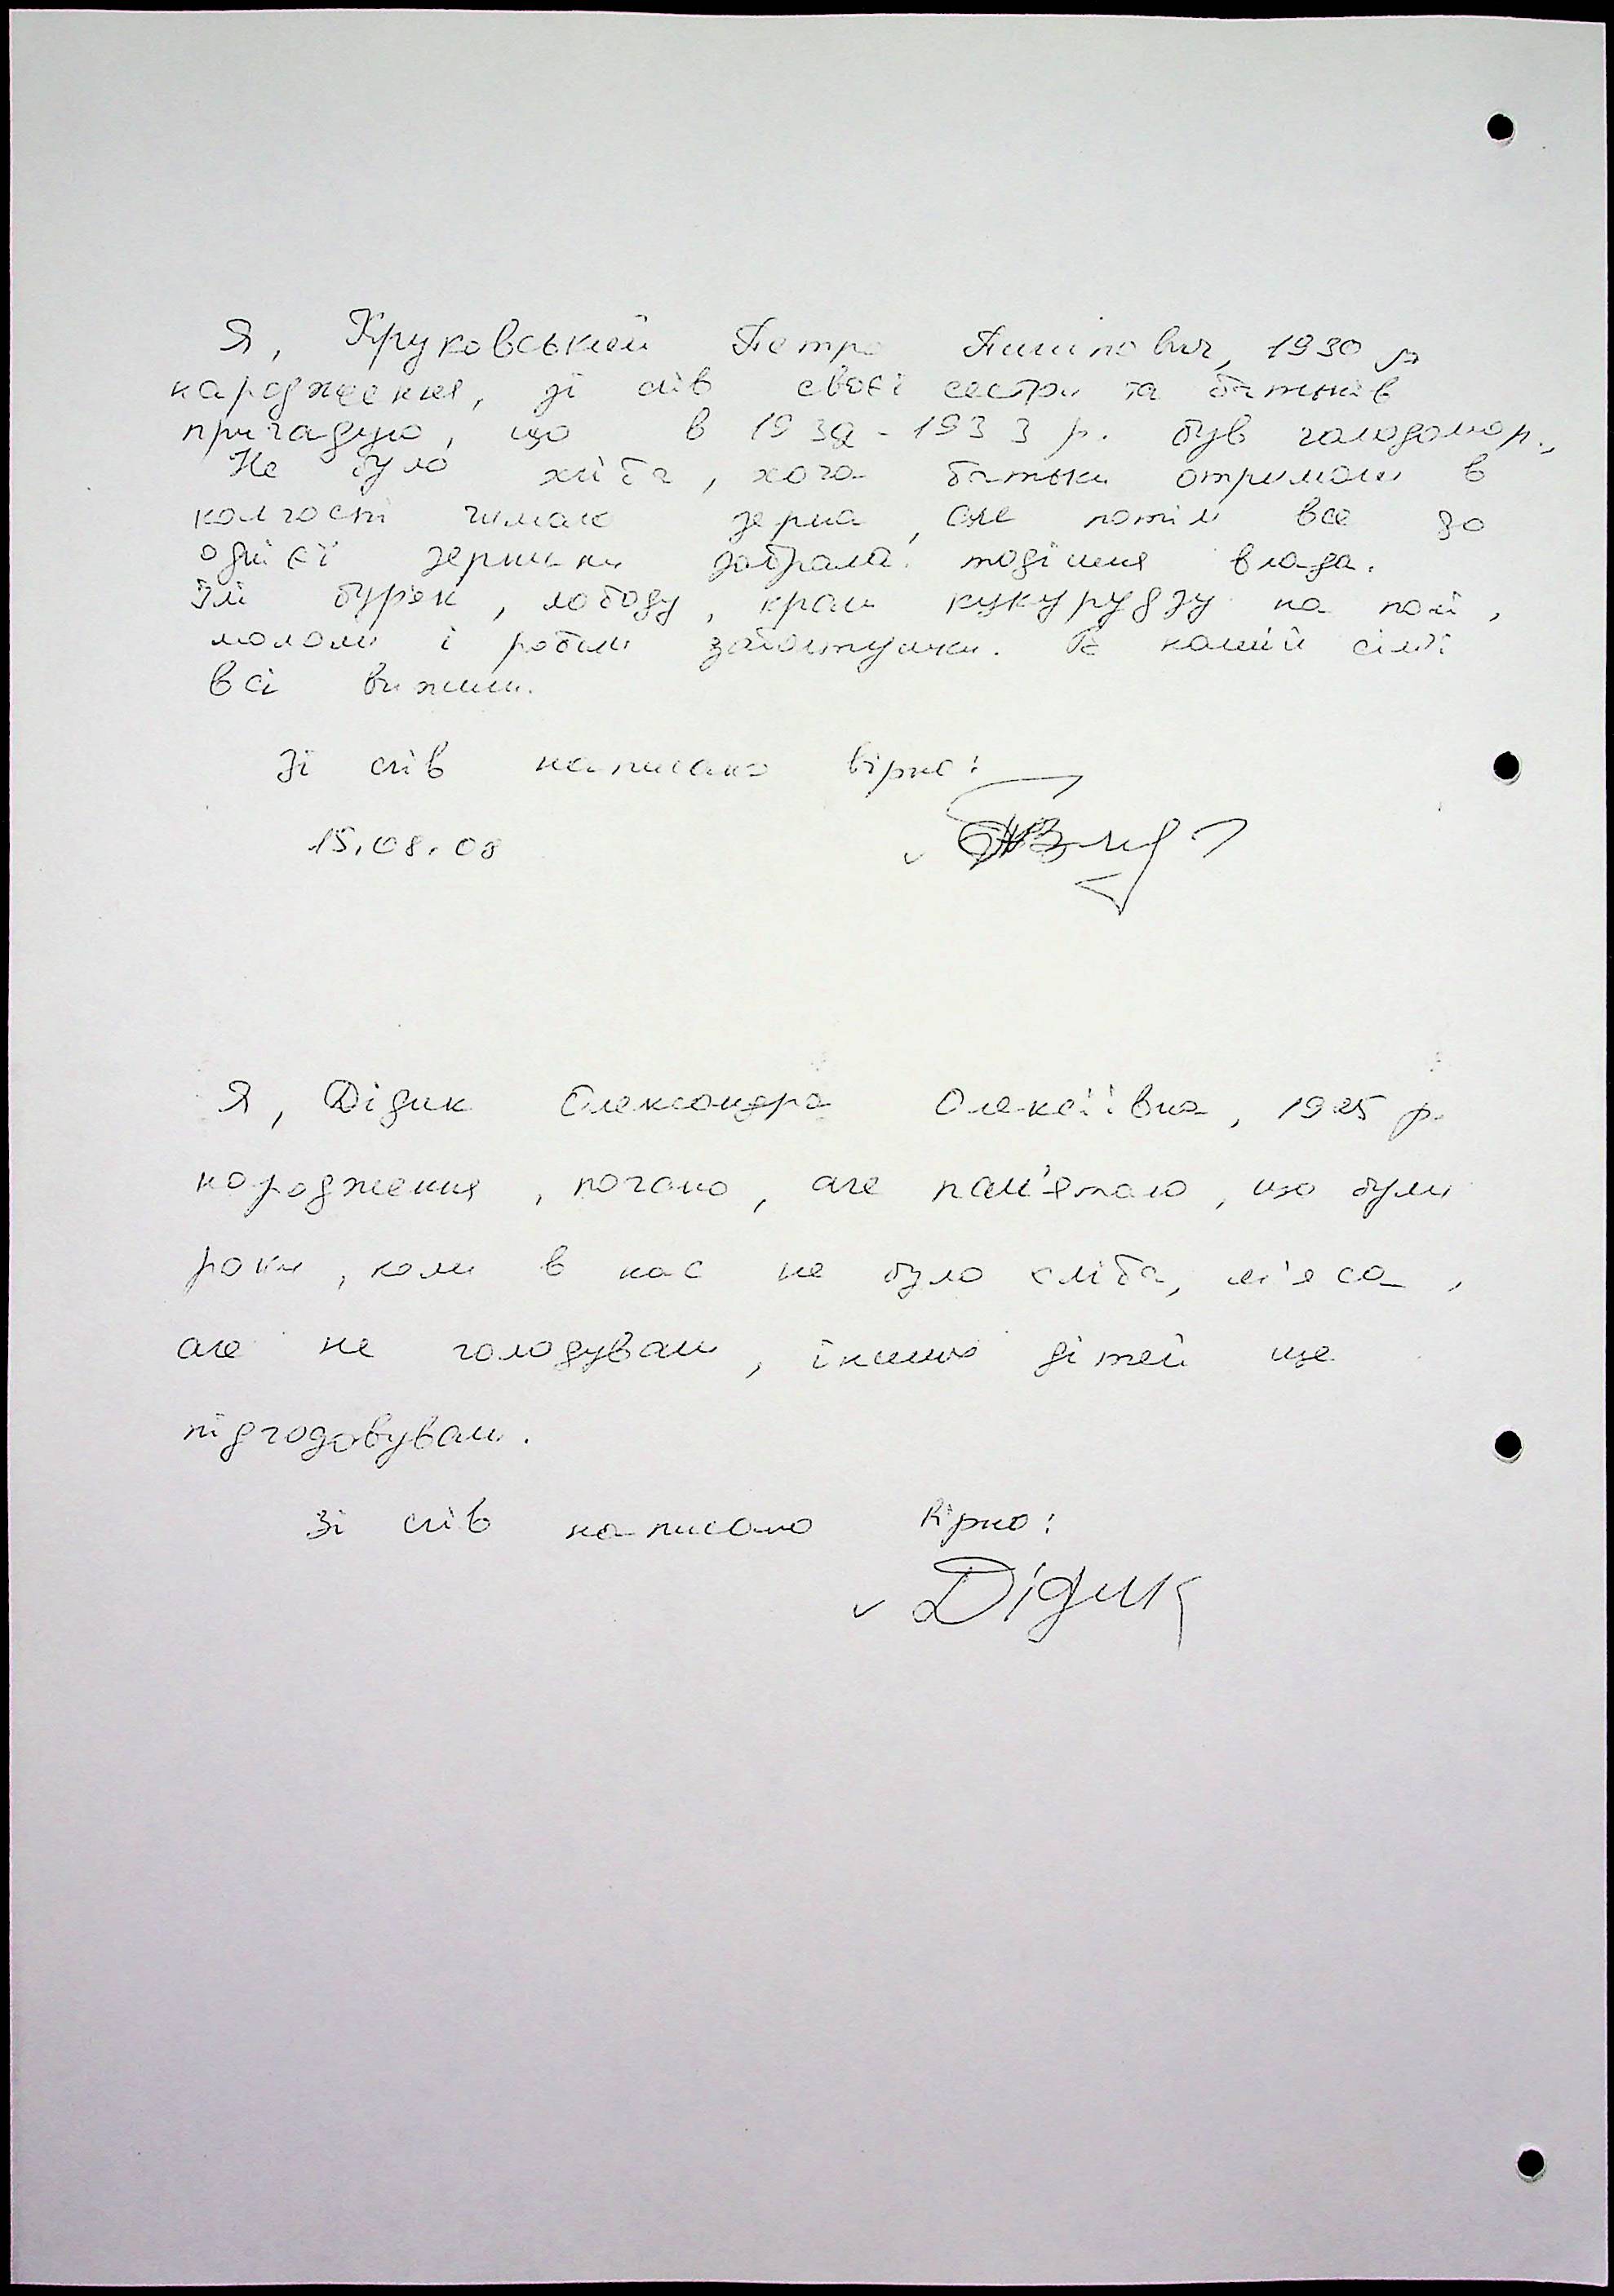 Я, Круковський Петро Пилипович, 1930 р
народження, зі слів своєї сестри та батьків
пригадую, що в 1932-1933 р. був голодомор.
Не було хліба, хоча батьки отримали в
колгоспі чимало зерна, але потім все до
однієї зернини забрала тодішня влада.
Їли буряк, лободу, крали кукурудзу на полі,
мололи і робили затірушки. В нашій сім'ї
всі вижили.
Зі слів написано вірно:
15.08.08
Я, Дідик Олександра Олексіївна, 1925 р.
народження, погано, але пам'ятаю, що були
роки, коли в нас не було хліба, м'яса,
але не голодували, інших дітей ще
підгодовували.
Зі слів написано вірно:
Дідик